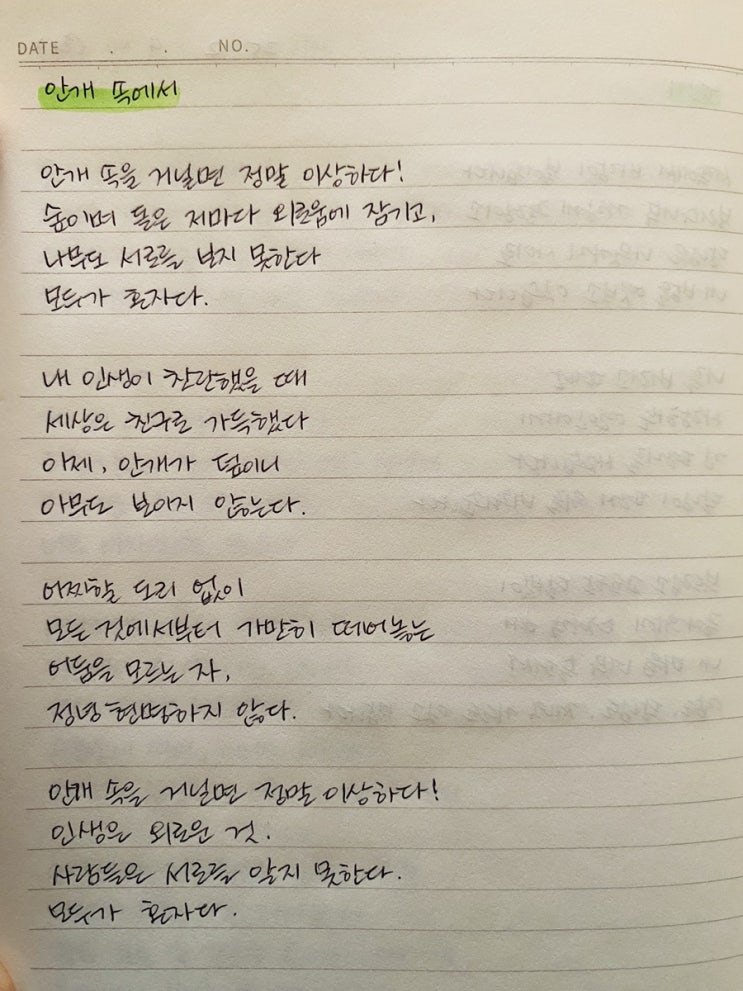 DATE . . NO.
안개 속에서
안개 속을 거닐면 정말 이상하다!
숲이며 돌은 저마다 외로움에 잠기고,
나무도 서로를 보지 못한다
모두가 혼자다.
내 인생이 찬란했을 때
세상은 친구로 가득했다
이제, 안개가 덮이니
아무도 보이지 않는다.
어찌할 도리 없이
모든 것에서부터 가만히 떼어놓는
어둠을 모르는 자,
정녕 현명하지 않다.
안개 속을 거닐면 정말 이상하다!
인생은 외로운 것.
사람들은 서로를 알지 못한다.
모두가 혼자다.